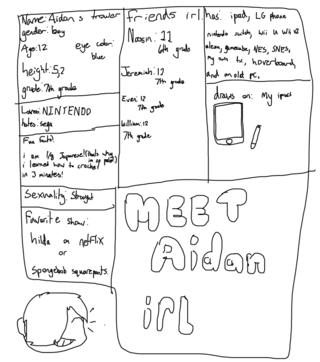 Name: Aidan s trower
gender: boy
Age: 12
eye color:
blue
height: 5,2
grade: 7th grade
Loves: NINTENDO
hates: sega
Fun fact!
i am 1/8 Japanese! (thats why
i learned how to crochet
in 3 minutes!
Sexuality: Straight
Favorite show:
hilda on netflix
or
Spongebob squarepants.
friends irl
11
6th grade
Jeremiah: 12
7th grade
Evan: 12
7th grade
William: 12
7th grade
has: ipad, LG phone
nintendo switch, Wii U Wii x2
NES, SNES,
my own tv, hoverboard,
and an old PC.
draws on: My ipad
MEET
Aidan
irl